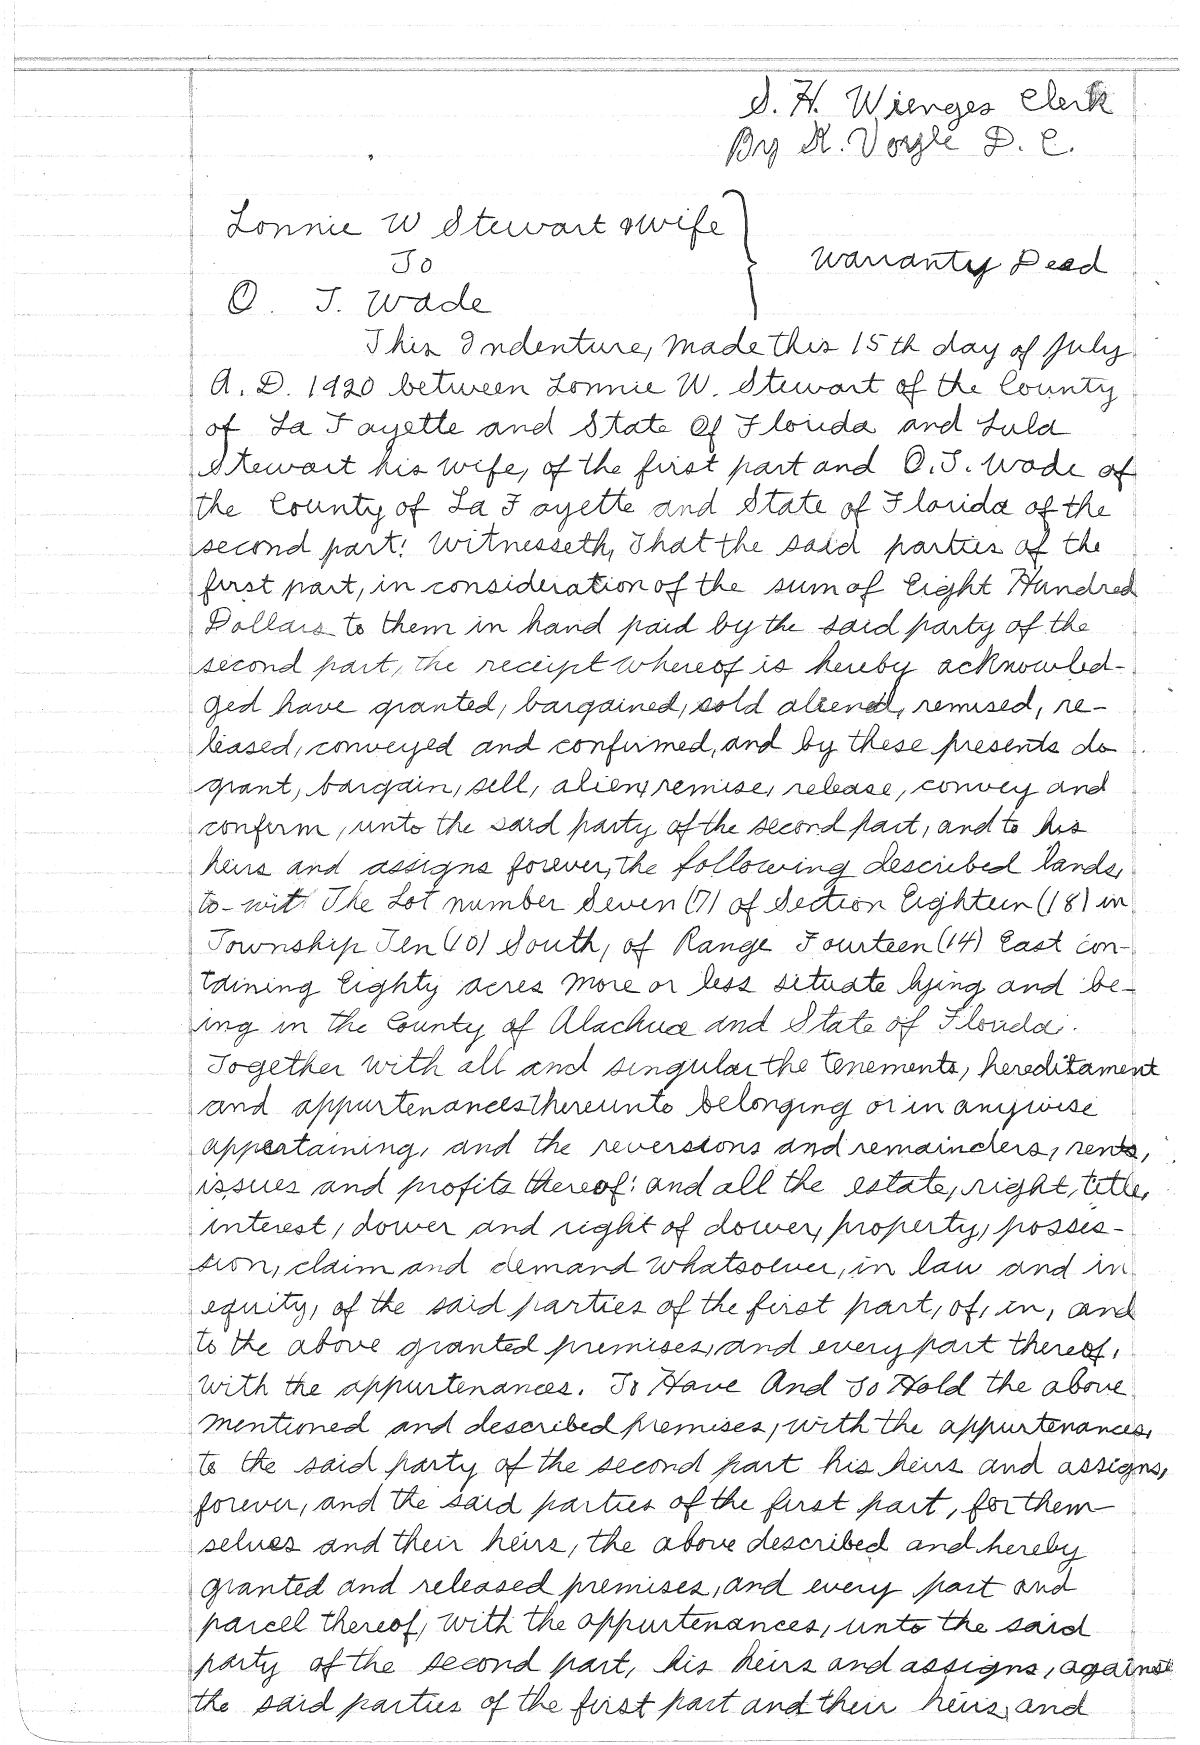 S. H. Wienges Clerk
By R. Vogle D. C.
Lonnie W Stewart & Wife
To
O. T. Wade
Warranty Deed
This Indenture, Made this 15th day of July
A. D. 1920 between Lonnie W. Stewart of the County
of La Fayette and State Of Florida and Lula
Stewart his wife, of the first part and O. T. Wade of
the County of La Fayette and State of Florida of the
second part: Witnesseth, That the said parties of the
first part, in consideration of the sum of Eight Hundred
Dollars to them in hand paid by the said party of the
second part, the receipt whereof is hereby acknowled-
ged have granted, bargained, sold aliened, remised, re-
leased, conveyed and confirmed, and by these presents do
grant, bargain, sell, alien, remise, release, convey and
confirm, unto the said party of the second part, and to his
heirs and assigns forever, the following described lands,
to-wit: The Lot number Seven (7) of Section Eighteen (18) in
Township Ten (10) South, of Range Fourteen (14) East con-
taining Eighty acres More or less situate lying and be-
ing in the County of Alachua and State of Florida.
Together with all and singular the tenements, hereditament
and appurtenances thereunto belonging or in anywise
appertaining, and the reversions and remainders, rents,
issues and profits thereof: and all the estate, right, title,
interest, dower and right of dower, property, posses-
sion, claim and demand whatsoever, in law and in
equity, of the said parties of the first part, of, in, and
to the above granted premises, and every part thereof,
with the appurtenances. To Have And To Hold the above
mentioned and described premises, with the appurtenances,
to the said party of the second part his heirs and assigns,
forever, and the said parties of the first part, for them-
selves and their heirs, the above described and hereby
granted and released premises, and every part and
parcel thereof, with the appurtenances, unto the said
party of the second part, his heirs and assigns, against
the said parties of the first part and their heirs, and